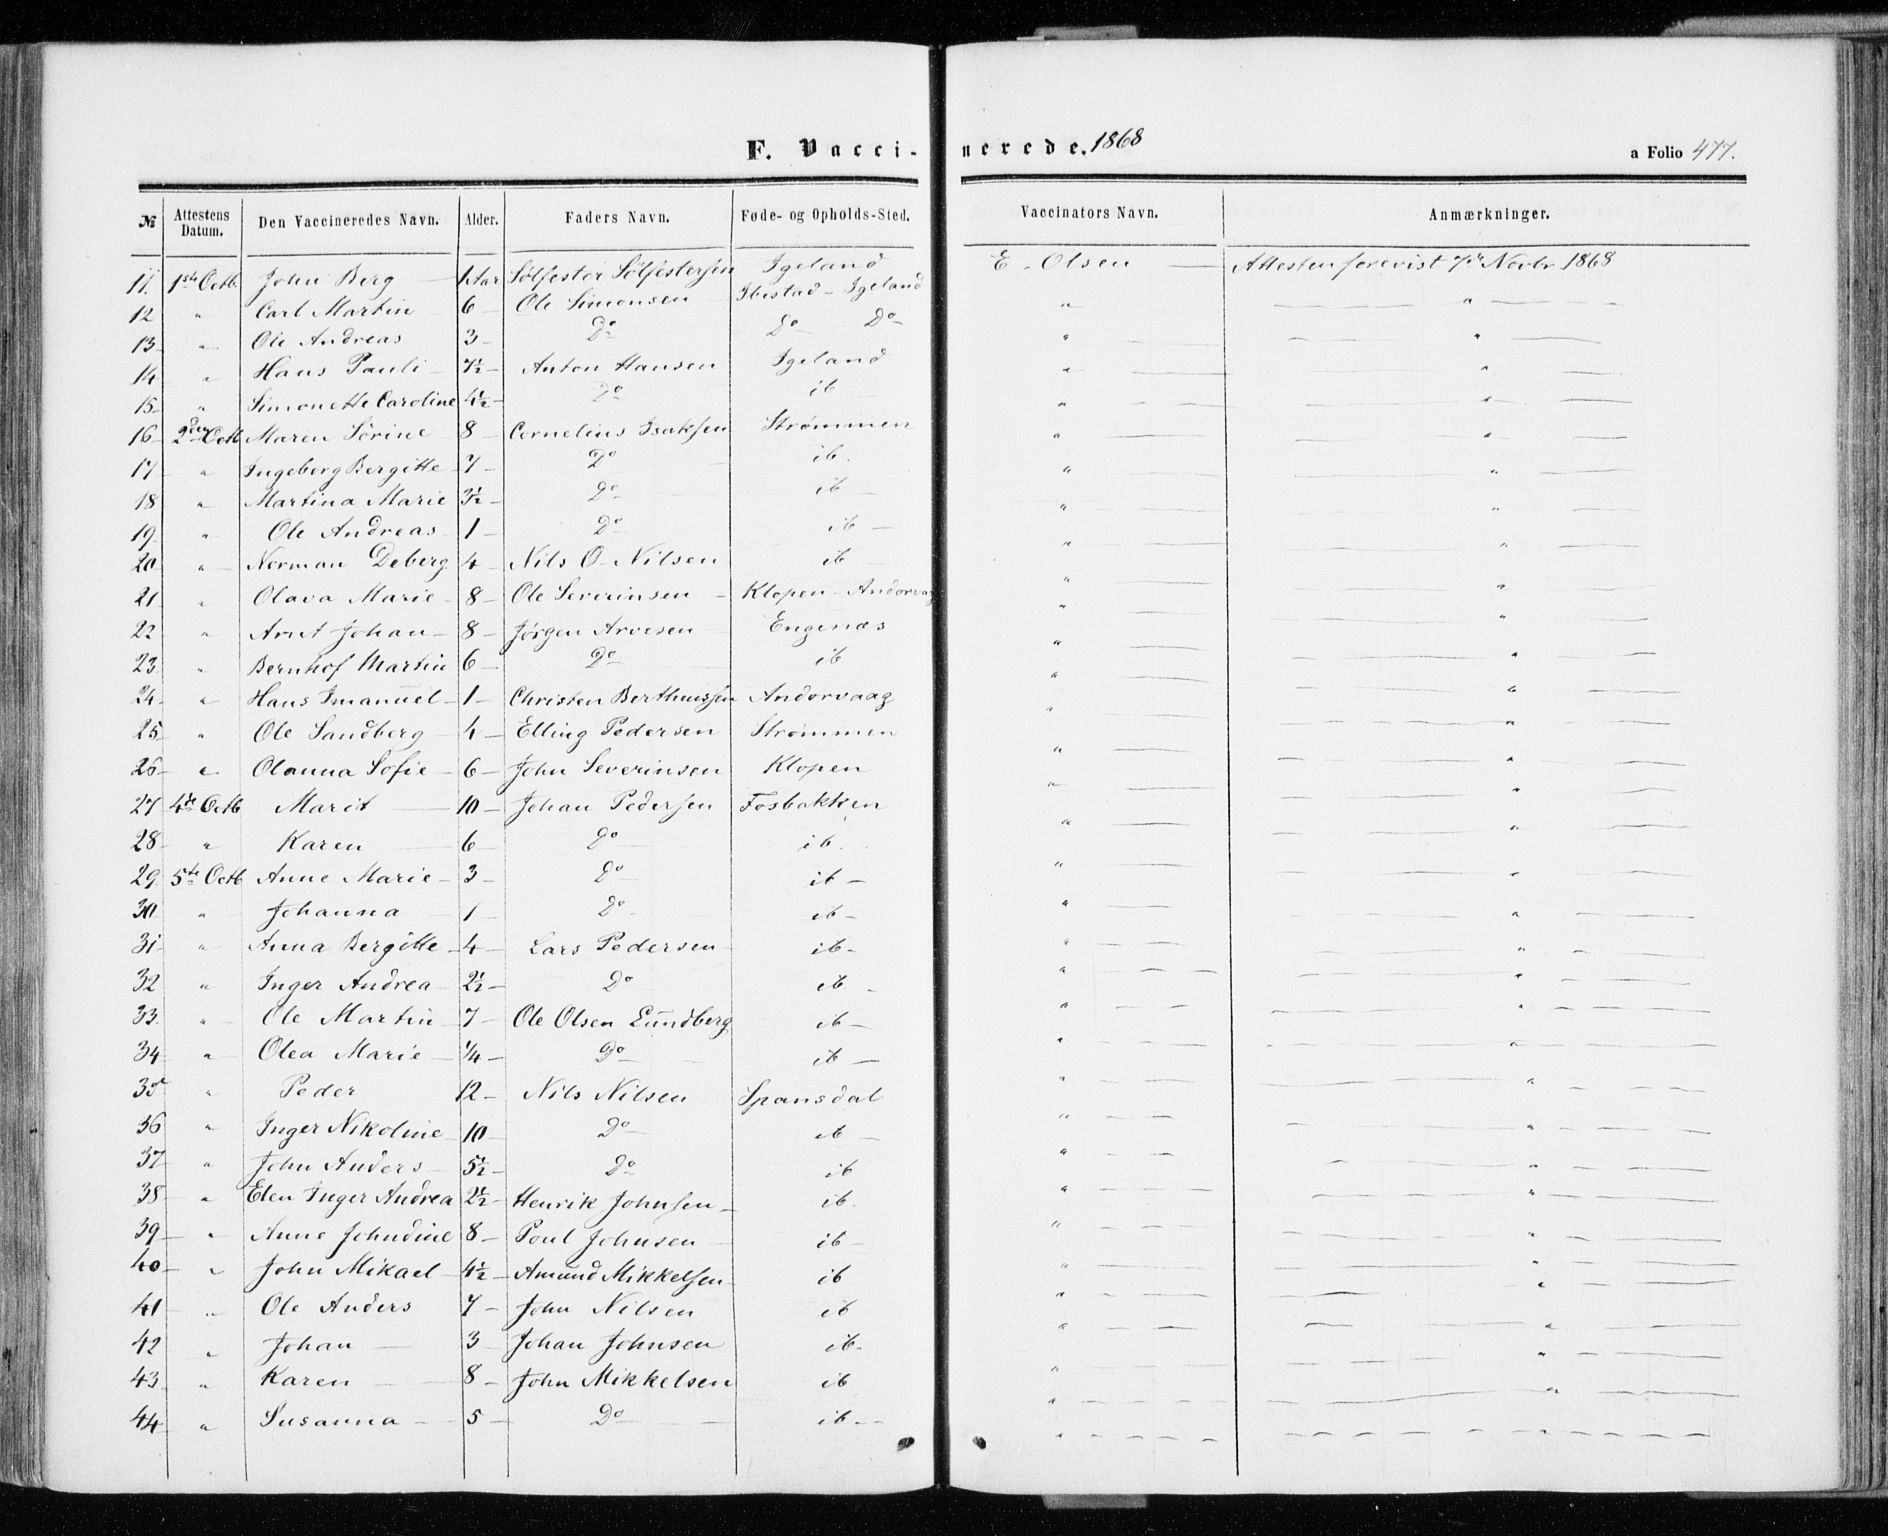 F. Vaccinerede. 1868
a Folio 477.
№ Attestens Datum. Den Vaccineredes Navn. Alder. Faders Navn. Føde- og Opholds-Sted. Vaccinators Navn. Anmærkninger.
11. 1ste Octb. John Berg — 1 Aar Sølfester Sølfestersen Igeland E. Olsen — Attesten forevist 7de Novbr 1868
12 " Carl Martin 6 — Ole Simonsen Ibestad - Igeland " "
13 " Ole Andreas 3 — Do Do Do " "
14 " Hans Pauli 7½ — Anton Hansen Igeland " "
15 " Simonette Caroline 4½ — Do ib " "
16 2den Octb Maren Sørine 8 — Cornelius Isaksen Strømmen " "
17 " Ingeborg Bergitte 7 — Do ib. " "
18 " Martina Marie 3½ — Do ib " "
19 " Ole Andreas 1 — Do ib — " "
20 " Norman Deberg 4 — Nils O. Nilsen ib " "
21 " Olava Marie 8 — Ole Severinsen Klopen - Andorvaag " "
22 " Arnt Johan 8 — Jørgen Arvesen Engenæs " "
23 " Bernhof Martin 6 — Do ib " "
24 " Hans Imanuel 1 — Christen Bertheussen Andorvaag " "
25 " Ole Sandberg 4 — Elling Pedersen Strømmen " "
26 " Olanna Sofie 6 — John Severinsen Klopen " "
27 4de Octb Marit 10 — Johan Pedersen Fosbakken " "
28 " Karen 6 — Do ib. " "
29 5te Octb Anne Marie 3 — Do ib — " "
30 " Johanna 1 — Do ib — " "
31 " Anna Bergitte 4 — Lars Pedersen ib — " "
32 " Inger Andrea 2½ — Do ib — " "
33 " Ole Martin 7 — Ole Olsen Lundberg ib — " "
34 " Olea Marie ¼ — Do ib — " "
35 " Peder 12 — Nils Nilsen Spansdal " "
36 " Inger Nikoline 10 — Do ib — " "
37 " John Anders 5½ — Do ib " "
38 " Elen Inger Andrea 2½ — Henrik Johnsen ib. " "
39 " Anne Johndine 8 — Poul Johnsen ib — " "
40 " John Mikael 4½ — Amund Mikkelsen ib " "
41 " Ole Anders 7 — John Nilsen ib " "
42 " Johan — 3 Johan Johnsen ib. " "
43 " Karen — 8 — John Mikkelsen ib " "
44 " Susanna — 5 — Do ib — " "